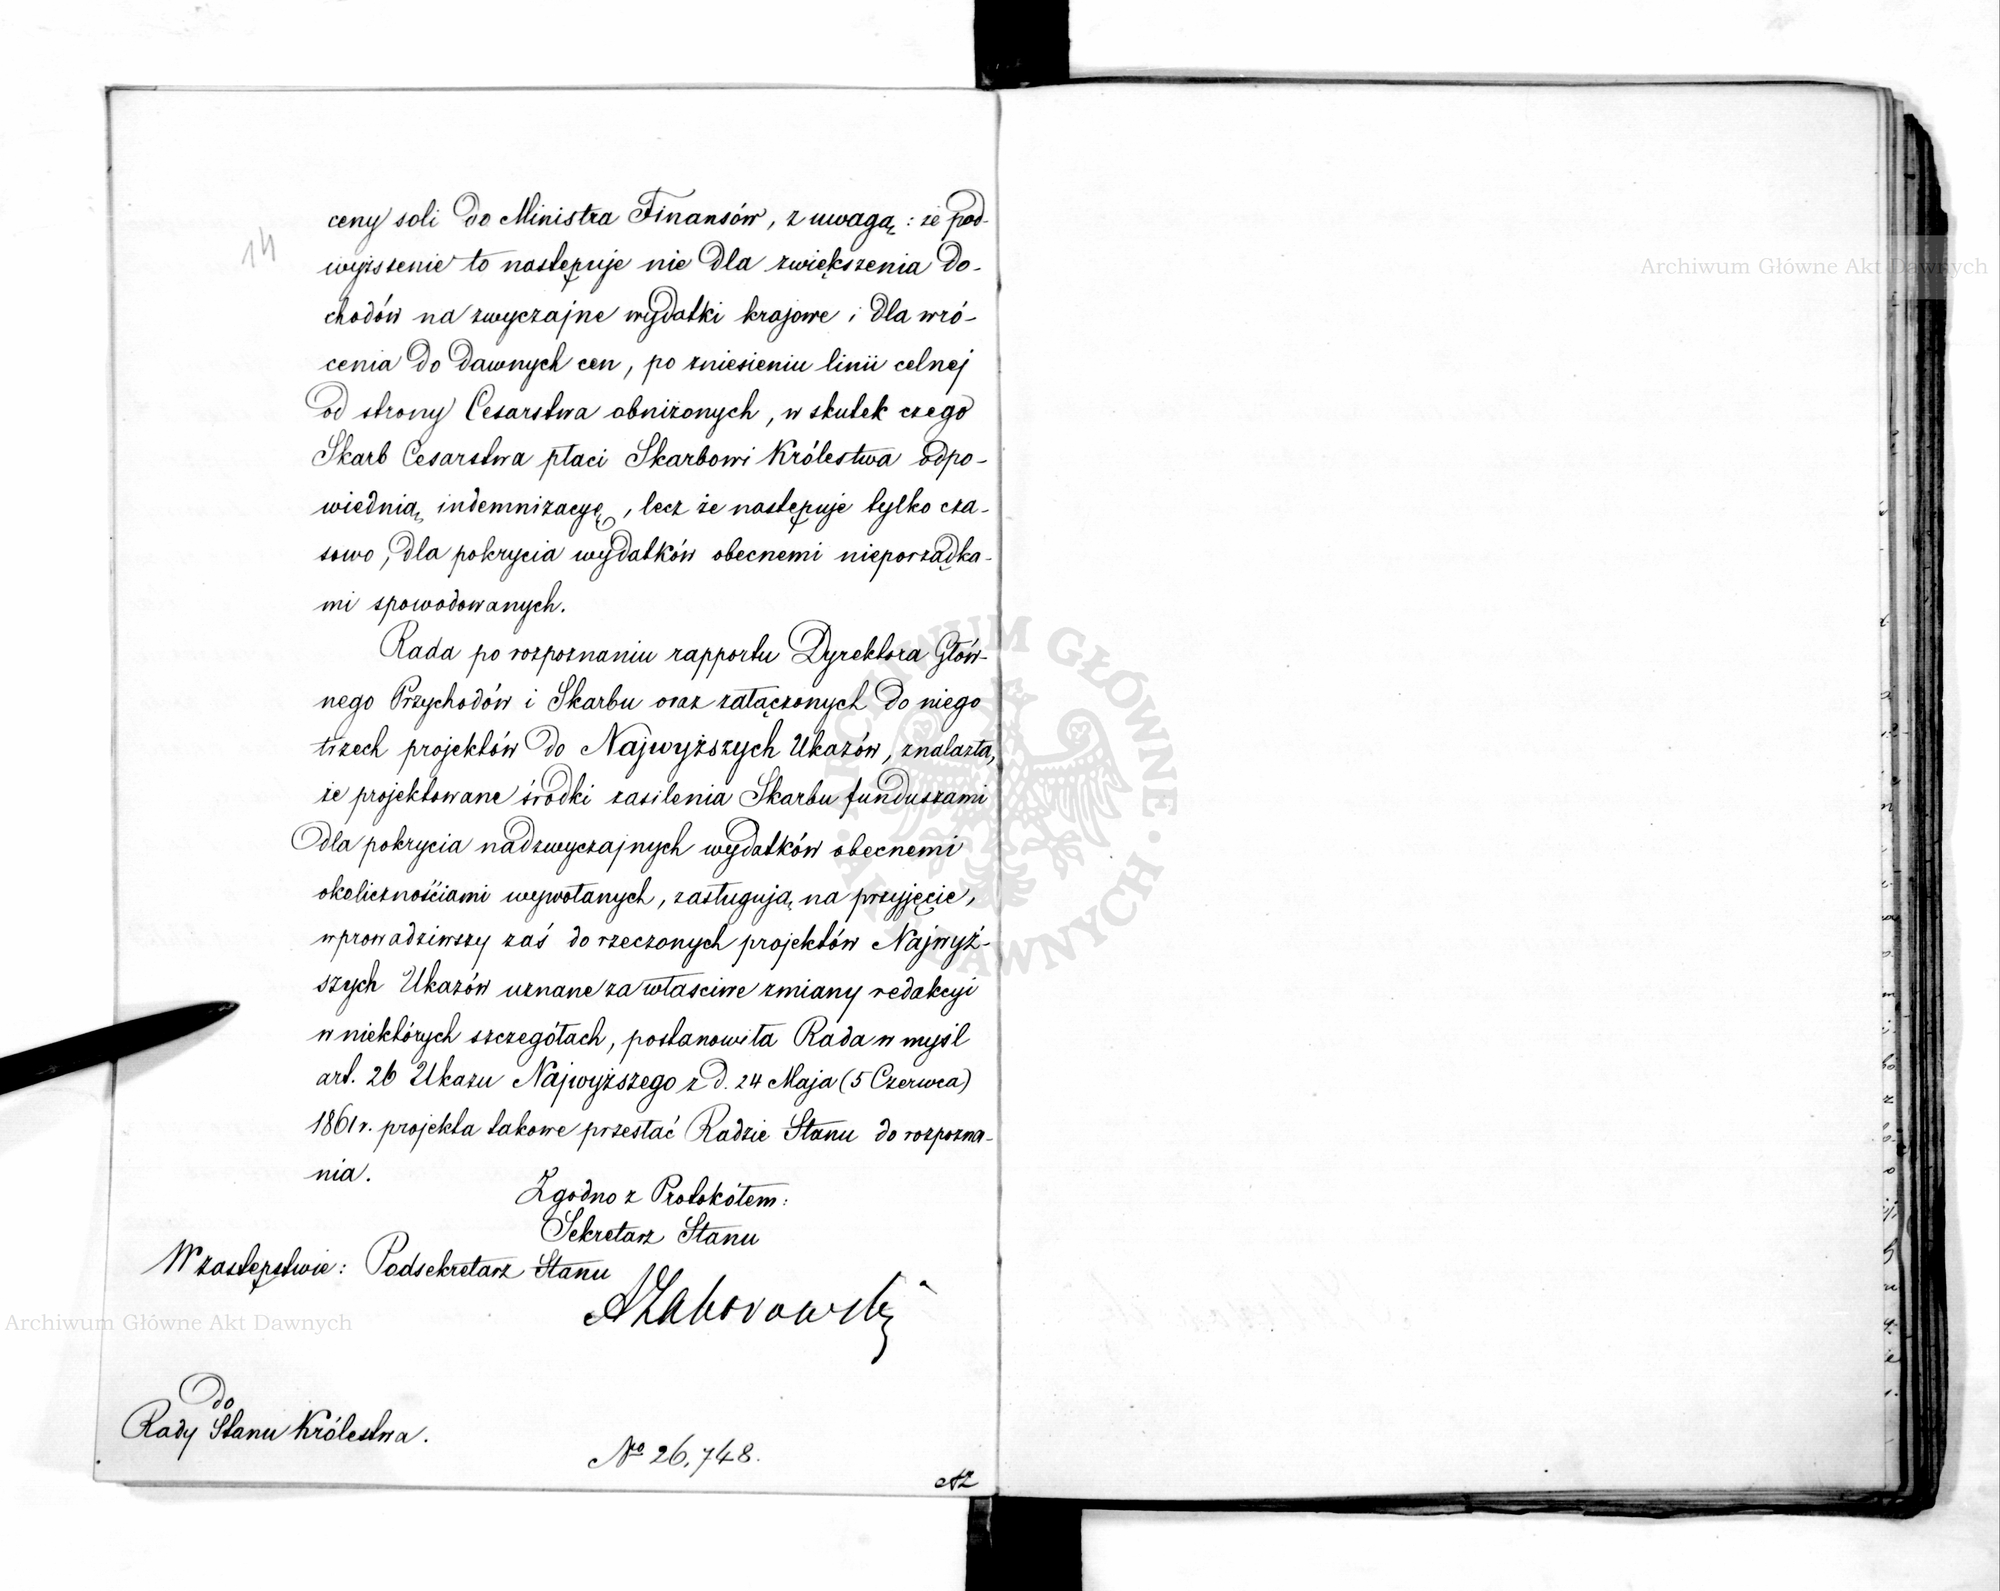 14
ceny soli do Ministra Finansów, z uwagą: że pod-
wyższenie to następuje nie dla zwiększenia do-
chodów na zwyczajne wydatki krajowe i dla wró-
cenia do dawnych cen, po zniesieniu linii celnej
od strony Cesarstwa obniżonych, w skutek czego
Skarb Cesarstwa płaci Skarbowi Królestwa odpo-
wiednią indemnizacyę, lecz że następuje tylko cza-
sowo, dla pokrycia wydatków obecnemi nieporządka-
mi spowodowanych.
Rada po rozpoznaniu rapportu Dyrektora Głów-
nego Przychodów i Skarbu oraz załączonych do niego
trzech projektów do Najwyższych Ukazów, znalazła,
że projektowane środki zasilenia Skarbu funduszami
dla pokrycia nadzwyczajnych wydatków obecnemi
okolicznościami wywołanych, zasługują na przyjęcie,
wprowadziwszy zaś do rzeczonych projektów Najwyż-
szych Ukazów uznane za właściwe zmiany redakcyi
w niektórych szczegółach, postanowiła Rada w myśl
art. 26 Ukazu Najwyższego z d. 24 Maja (5 Czerwca)
1861 r. projekta takowe przesłać Radzie Stanu do rozpozna-
nia.
Zgodno z Protokółem:
Sekretarz Stanu
W zastępstwie: Podsekretarz Stanu
AZaborowski
do
Rady Stanu Królestwa.
No 26,748.
AZ
Archiwum Główne Akt Dawnych
Archiwum Główne Akt Dawnych
ARCHIWUM GŁÓWNE · AKT DAWNYCH ·